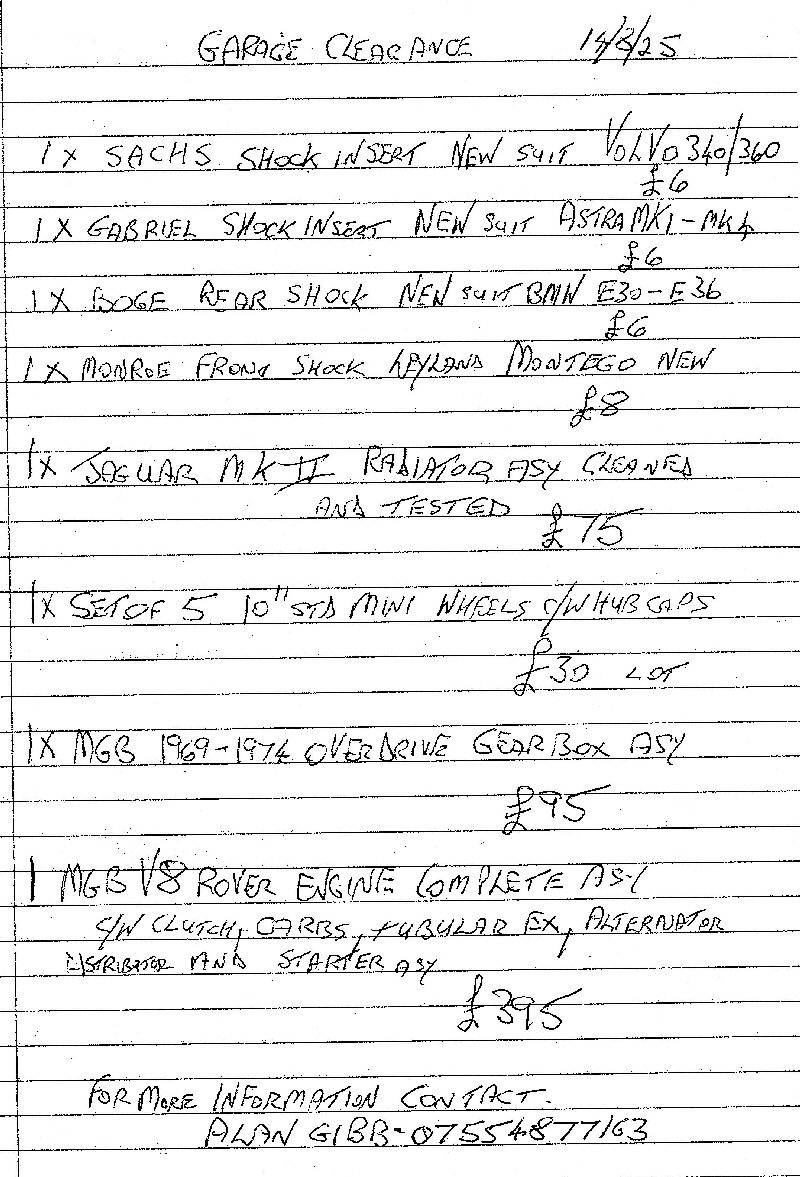 GARAGE CLEARANCE 14/8/25
1 X SACHS SHOCK INSERT NEW SUIT VOLVO 340/360
£6
1 X GABRIEL SHOCK INSERT NEW SUIT ASTRA MK1-MK4
£6
1 X BOGE REAR SHOCK NEW SUIT BMW E30-E36
£6
1 X MONROE FRONT SHOCK LEYLAND MONTEGO NEW
£8
1X JAGUAR MK II RADIATOR ASY CLEANED
AND TESTED
£75
1X SET OF 5 10" STD MINI WHEELS C/W HUB CAPS
£30 LOT
1X MGB 1969-1974 OVERDRIVE GEARBOX ASY
£95
1 MGB V8 ROVER ENGINE COMPLETE ASY
C/W CLUTCH, CARBS, TUBULAR EX, ALTERNATOR
DISTRIBUTOR AND STARTER ASY
£395
FOR MORE INFORMATION CONTACT.
ALAN GIBB-07554877163